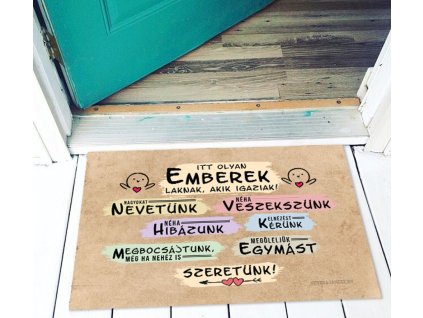 ITT OLYAN
EMBEREK
LAKNAK, AKIK IGAZIAK!
NAGYOKAT NEVETÜNK
NÉHA VESZEKSZÜNK
NÉHA HIBÁZUNK
ELNÉZÉST KÉRÜNK
MEGBOCSÁJTUNK,
MÉG HA NEHÉZ IS
MEGÖLELJÜK EGYMÁST
SZERETÜNK!